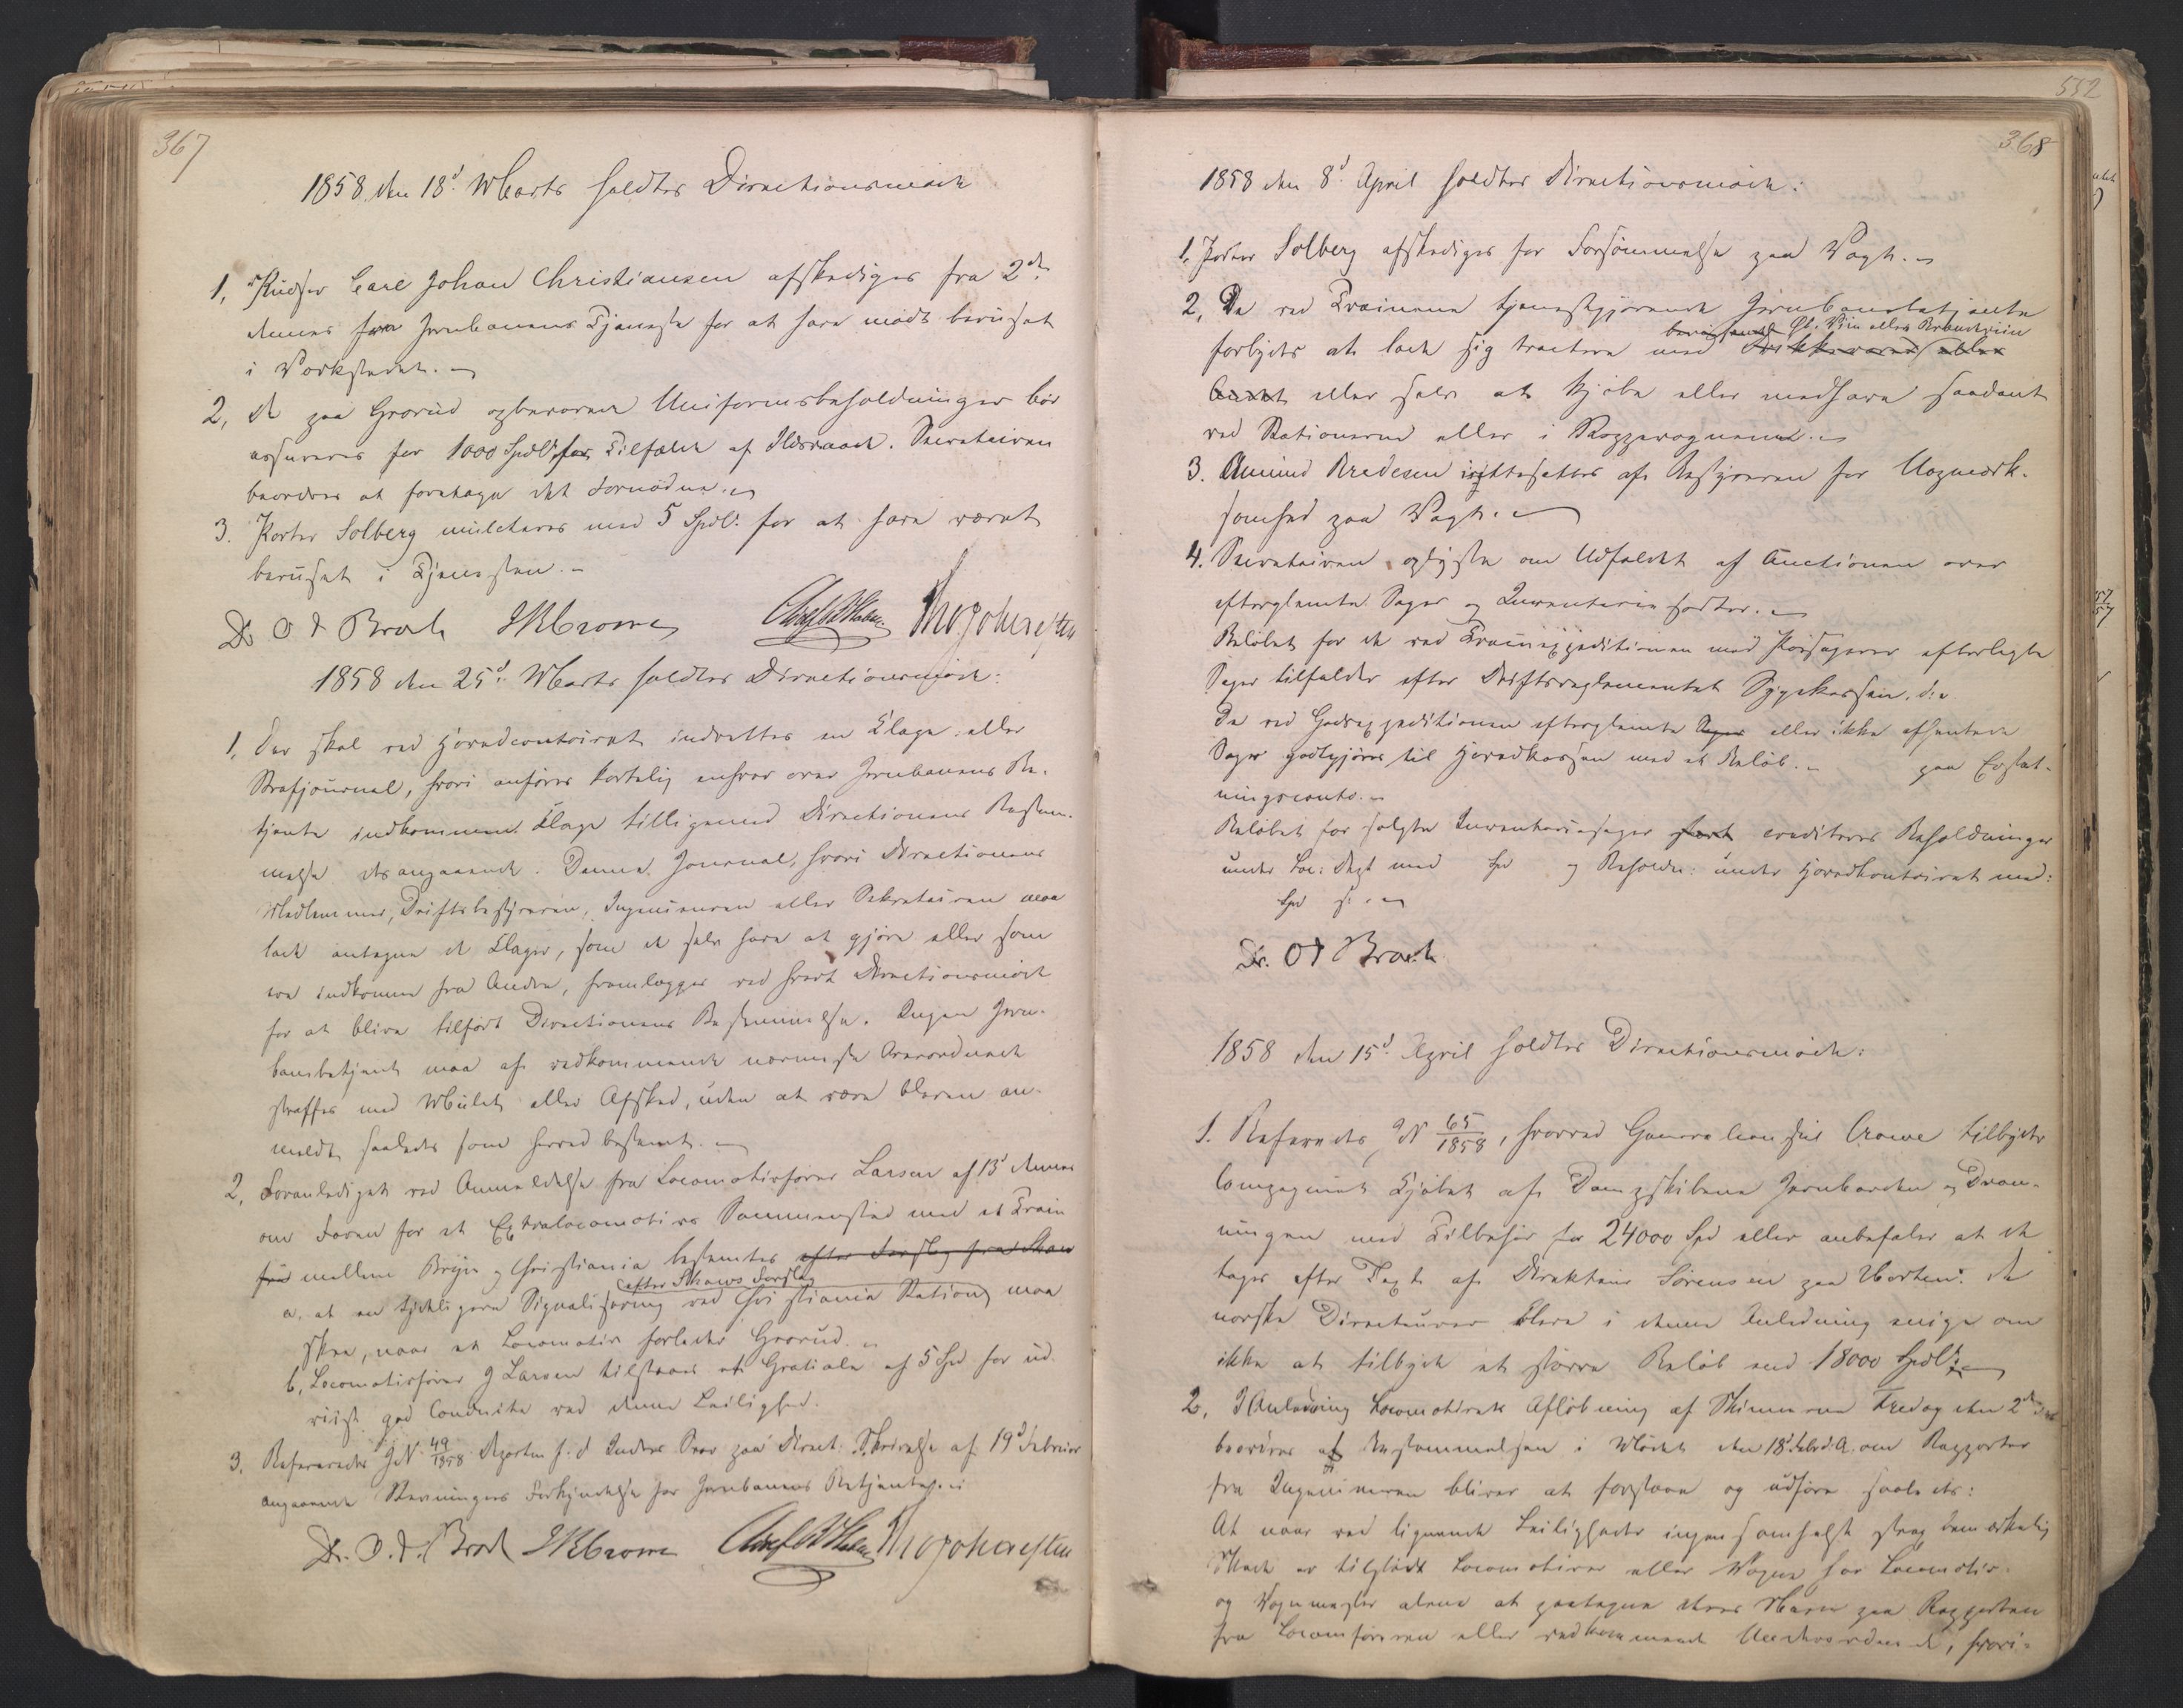 367
1858 den 18d Marts holdtes Directionsmöde
1, Pudser Carl Johan Christiansen afskediges fra 2den
dennes fra Jernbanens Tjeneste for at have mödt beruset
i Verkstedet.
2, De paa Grorud opbevarede Uniformsbeholdninger bör
assureres for 1000 Spdlr for Tilfælde af Ildsvaade. Secretairen
beordres at foretage det Fornödne.
3. Porter Solberg mulcteres med 5 Spdl. for at have været
beruset i Tjenesten.
Dr O J Broch JRCrowe Tho Johnesten
1858 den 25d Marts holdtes Directionsmöde:
1, Der skal ved Hovedcontoiret indrettes en Klage eller
Strafjournal, hvori anföres kortelig enhver over Jernbanens Be-
tjente indkommen Klage tilligemed Directionens Bestem-
melse desangaaende. Denne Journal, hvori Directionens
Medlemmer, Driftsbestyreren, Ingenieuren eller Sekretairen maa
lade antegne de Klager, som de selv have at gjöre eller som
ere indkomne fra Andre, fremlægges ved hvert Directionsmöde
for at blive tilfört Directionens Bestemmelse. Ingen Jern-
banebetjent maa af vedkommende nærmeste Overordnede
straffes med Mulct eller Afsked, uden at være bleven an-
meldt saaledes som herved bestemt.
2, Foranlediget ved Anmeldelse fra Locomotivförer Larsen af 13d dennes
om Faren for et Extralocomotivs Sammenstöd med et Train
mellem Bryn og Christiania bestemtes efter Forslag fra Shaw
efter Shaws Forslag
a. at en tydeligere Signalisering ved Christiania Station maa
skee, naar et Locomotiv forlader Grorud.
b, Locomotivförer G Larsen tilstaaes et Gratiale af 5 Spd for ud-
viist god Conduite ved denne Leilighed.
3. Refereredes JN 49/1858 Departem f. d Indres Svar paa Direct: Skrivelse af 19d Februar
angaaende Stevningers Forkyndelse for Jernbanens Betjente.
Dr. O. J. Broch JRCrowe Tho Johnesten
552
368
1858 den 8d April holdtes Directionsmöde:
1, Porter Solberg afskediges for Forsömmelse paa Vagt.
2, De ved Trainene tjenestgjörende Jernbanebetjente
berusende Öl, Viin eller Brændeviin
forbydes at lade sig tractere med Drikkevarer eller
Andet eller selv at kjöbe eller medhave saadant
ved Stationerne eller i Pappevognene.
3. Amund Bredesen irettesættes af Bestyreren for Uopmærk-
somhed paa Vagt.
4. Secretairen oplyste om Udfaldet af Auctionen over
efterglemte Sager og Inventariesorter.
Belöbet for de ved Trainexpeditionen med Passagerer efterlagte
Sager tilfalder efter Driftsreglementet Sygekassen,
De ved Godsexpeditionen efterglemte Sager eller ikke afhentede
Sager godtgjöres til Hovedkassen med et Belöb. paa Erstat-
ningsconto.
Belöbet for solgte Inventariesager crediteres Beholdninger
under Loc: Dept med Spd og Beholdn: under Hovedkontoiret med:
Spd s:
Dr. O J Broch
1858 den 15d April holdtes Directionsmöde:
1. Refereredes JN 65/1858, hvorved Generalconsul Crowe tilbyder
Compagniet Kjöbet af Dampskibene Jernbarden og Dron-
ningen med Tilbehör for 24000 Spd eller anbefaler at de
tages efter Taxt af Direkteur Sörensen paa Horten: De
norske Directeurer bleve i denne Anledning enige om
ikke at tilbyde et större Belöb end 18000 Spdlr
2, I Anledning Locomotivets Aflöbning af Skinnerne Fredag den 2den
beordres at Bestemmelsen i Mödet den 18d Febr d: A. om Rapporter
fra Ingenieuren bliver at forstaae og udföre saaledes:
At naar ved lignende Leiligheder ingensomhelst strax bemærkelig
Skade er tilföiet Locomotiver eller Vogne har Locomotiv-
og Vognmester alene at paategne deres Navn paa Rapporten
fra Locomföreren eller vedkommende Underordnede, hvori-